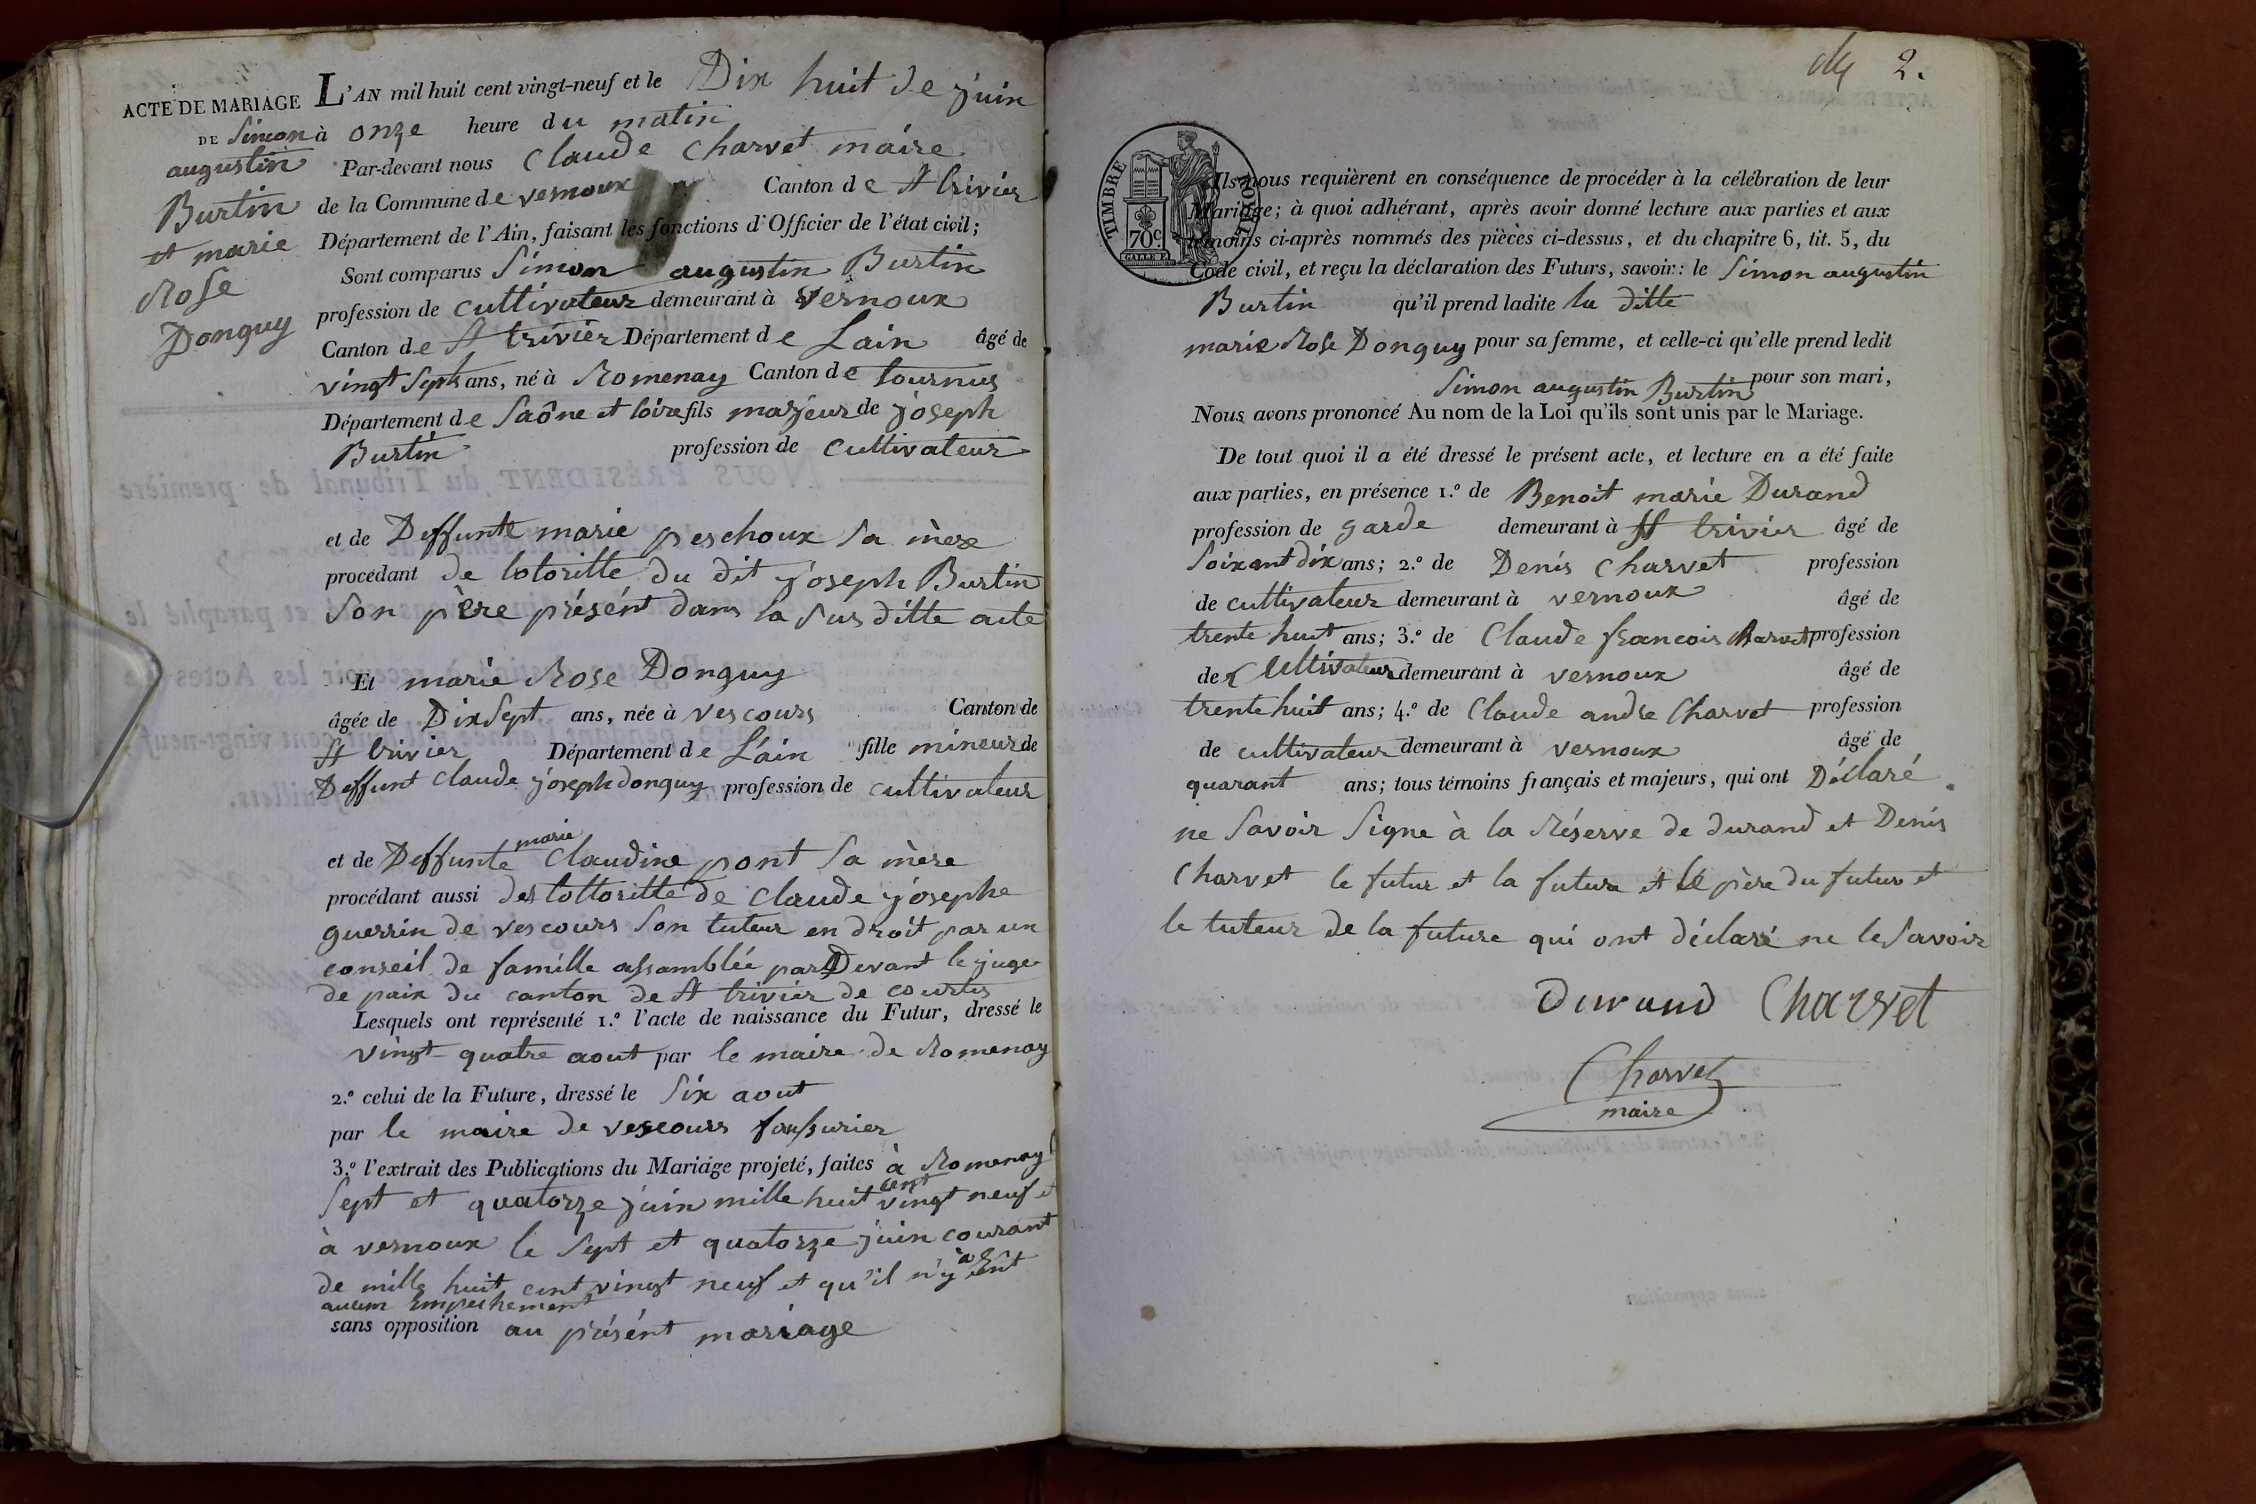 ACTE DE MARIAGE
DE Simon
augustin
Burtin
et marie
Rose
Donguy
L'AN mil huit cent vingt-neuf et le Dix huit de juin
à onze heure du matin
Par-devant nous Claude Charvet maire
de la Commune de vernoux Canton de St trivier
Département de l'Ain, faisant les fonctions d'Officier de l'état civil;
Sont comparus Simon augustin Burtin
profession de cultivateur demeurant à vernoux
Canton de St trivier Département de Lain âgé de
vingt Septs ans, né à Romenay Canton de tournus
Département de Saône et loire fils majeur de joseph
Burtin profession de cultivateur
et de Deffunte marie peschoux sa mère
procédant de lotoritte du dit joseph Burtin
Son père présént dans la susditte acte
Et marie Rose Donguy
âgée de Dix Sept ans, née à vescours Canton de
St trivier Département de L'ain fille mineur de
Deffunt Claude joseph donguy profession de cultivateur
et de Deffunte marie Claudine pont sa mère
procédant aussi de lottoritte de Claude josephe
guerrin de vescours Son tuteur en droit par un
conseil de famille assamblée par Devant le juge
de paix du canton de St trivier de courtes
Lesquels ont représenté 1.º l'acte de naissance du Futur, dressé le
vingt-quatre aout par le maire de Romenay
2.º celui de la Future, dressé le Six aout
par le maire de vescours
3.º l'extrait des Publications du Mariage projeté, faites à Romenay
Sept et quatorze juin mille huit cent vingt neuf et
à vernoux le Sept et quatorze juin courant
de mille huit cent vingt neuf et qu'il n'y a
aucun Empechement
sans opposition au présént mariage
2.
TIMBRE ROYAL
70c
Ils nous requièrent en conséquence de procéder à la célébration de leur
Mariage; à quoi adhérant, après avoir donné lecture aux parties et aux
témoins ci-après nommés des pièces ci-dessus, et du chapitre 6, tit. 5, du
Code civil, et reçu la déclaration des Futurs, savoir: le Simon augustin
Burtin qu'il prend ladite la ditte
marie Rose Donguy pour sa femme, et celle-ci qu'elle prend ledit
Simon augustin Burtin pour son mari,
Nous avons prononcé Au nom de la Loi qu'ils sont unis par le Mariage.
De tout quoi il a été dressé le présent acte, et lecture en a été faite
aux parties, en présence 1.º de Benoit marie Durand
profession de garde demeurant à St trivier âgé de
Soixant dix ans; 2.º de Denis Charvet profession
de cultivateur demeurant à vernoux âgé de
trente huit ans; 3.º de Claude francois Charvet profession
de Cultivateur demeurant à vernoux âgé de
trente huit ans; 4.º de Claude andre Charvet profession
de cultivateur demeurant à vernoux âgé de
quarant ans; tous témoins français et majeurs, qui ont Déclaré
ne Savoir Signe à la Réserve de durand et Denis
Charvet le futur et la future et le père du futur et
le tuteur de la future qui ont déclaré ne le Savoir
Durand Charvet
Charvet
maire